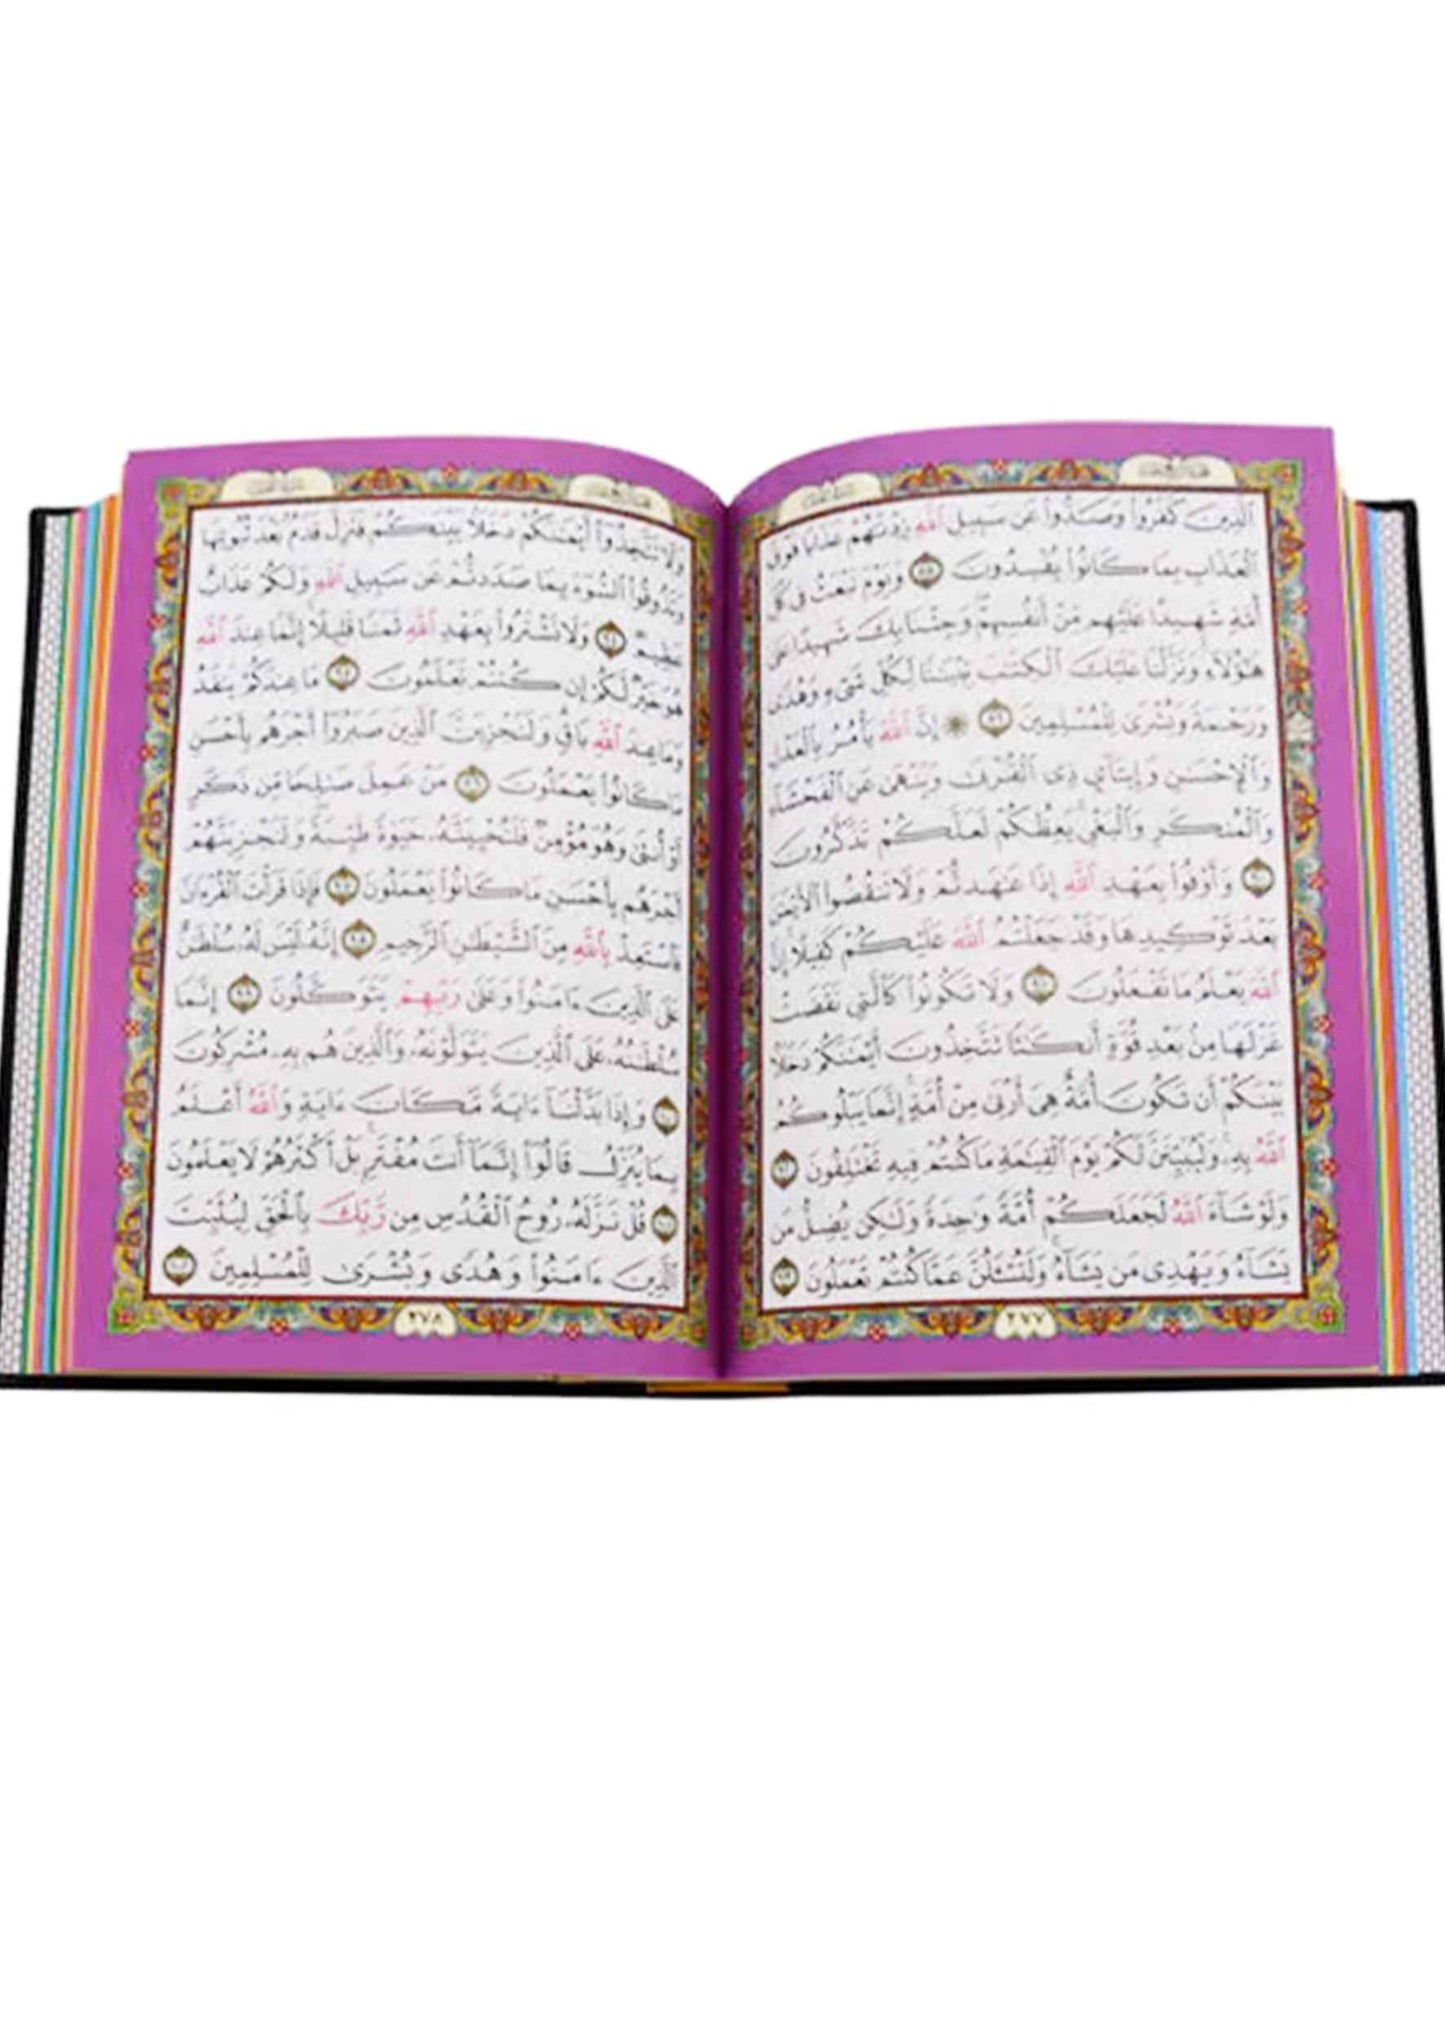 ٱلَّذِينَ كَفَرُوا۟ وَصَدُّوا۟ عَن سَبِيلِ ٱللَّهِ زِدْنَٰهُمْ عَذَابًا فَوْقَ
ٱلْعَذَابِ بِمَا كَانُوا۟ يُفْسِدُونَ ٨٨ وَيَوْمَ نَبْعَثُ فِى كُلِّ
أُمَّةٍ شَهِيدًا عَلَيْهِم مِّنْ أَنفُسِهِمْ ۖ وَجِئْنَا بِكَ شَهِيدًا عَلَىٰ
هَٰٓؤُلَآءِ ۚ وَنَزَّلْنَا عَلَيْكَ ٱلْكِتَٰبَ تِبْيَٰنًا لِّكُلِّ شَىْءٍ وَهُدًى
وَرَحْمَةً وَبُشْرَىٰ لِلْمُسْلِمِينَ ٨٩ ۞ إِنَّ ٱللَّهَ يَأْمُرُ بِٱلْعَدْلِ
وَٱلْإِحْسَٰنِ وَإِيتَآئِ ذِى ٱلْقُرْبَىٰ وَيَنْهَىٰ عَنِ ٱلْفَحْشَآءِ
وَٱلْمُنكَرِ وَٱلْبَغْىِ ۚ يَعِظُكُمْ لَعَلَّكُمْ تَذَكَّرُونَ
٩٠ وَأَوْفُوا۟ بِعَهْدِ ٱللَّهِ إِذَا عَٰهَدتُّمْ وَلَا تَنقُضُوا۟ ٱلْأَيْمَٰنَ
بَعْدَ تَوْكِيدِهَا وَقَدْ جَعَلْتُمُ ٱللَّهَ عَلَيْكُمْ كَفِيلًا ۚ إِنَّ
ٱللَّهَ يَعْلَمُ مَا تَفْعَلُونَ ٩١ وَلَا تَكُونُوا۟ كَٱلَّتِى نَقَضَتْ
غَزْلَهَا مِنۢ بَعْدِ قُوَّةٍ أَنكَٰثًا تَتَّخِذُونَ أَيْمَٰنَكُمْ دَخَلًۢا
بَيْنَكُمْ أَن تَكُونَ أُمَّةٌ هِىَ أَرْبَىٰ مِنْ أُمَّةٍ ۚ إِنَّمَا يَبْلُوكُمُ
ٱللَّهُ بِهِۦ ۚ وَلَيُبَيِّنَنَّ لَكُمْ يَوْمَ ٱلْقِيَٰمَةِ مَا كُنتُمْ فِيهِ تَخْتَلِفُونَ ٩٢
وَلَوْ شَآءَ ٱللَّهُ لَجَعَلَكُمْ أُمَّةً وَٰحِدَةً وَلَٰكِن يُضِلُّ مَن
يَشَآءُ وَيَهْدِى مَن يَشَآءُ ۚ وَلَتُسْـَٔلُنَّ عَمَّا كُنتُمْ تَعْمَلُونَ ٩٣
٢٧٧
وَلَا تَتَّخِذُوٓا۟ أَيْمَٰنَكُمْ دَخَلًۢا بَيْنَكُمْ فَتَزِلَّ قَدَمٌۢ بَعْدَ ثُبُوتِهَا
وَتَذُوقُوا۟ ٱلسُّوٓءَ بِمَا صَدَدتُّمْ عَن سَبِيلِ ٱللَّهِ ۖ وَلَكُمْ عَذَابٌ
عَظِيمٌ ٩٤ وَلَا تَشْتَرُوا۟ بِعَهْدِ ٱللَّهِ ثَمَنًا قَلِيلًا ۚ إِنَّمَا عِندَ ٱللَّهِ
هُوَ خَيْرٌ لَّكُمْ إِن كُنتُمْ تَعْلَمُونَ ٩٥ مَا عِندَكُمْ يَنفَدُ ۖ
وَمَا عِندَ ٱللَّهِ بَاقٍ ۗ وَلَنَجْزِيَنَّ ٱلَّذِينَ صَبَرُوٓا۟ أَجْرَهُم بِأَحْسَنِ
مَا كَانُوا۟ يَعْمَلُونَ ٩٦ مَنْ عَمِلَ صَٰلِحًا مِّن ذَكَرٍ
أَوْ أُنثَىٰ وَهُوَ مُؤْمِنٌ فَلَنُحْيِيَنَّهُۥ حَيَوٰةً طَيِّبَةً ۖ وَلَنَجْزِيَنَّهُمْ
أَجْرَهُم بِأَحْسَنِ مَا كَانُوا۟ يَعْمَلُونَ ٩٧ فَإِذَا قَرَأْتَ ٱلْقُرْءَانَ
فَٱسْتَعِذْ بِٱللَّهِ مِنَ ٱلشَّيْطَٰنِ ٱلرَّجِيمِ ٩٨ إِنَّهُۥ لَيْسَ لَهُۥ سُلْطَٰنٌ
عَلَى ٱلَّذِينَ ءَامَنُوا۟ وَعَلَىٰ رَبِّهِمْ يَتَوَكَّلُونَ ٩٩ إِنَّمَا
سُلْطَٰنُهُۥ عَلَى ٱلَّذِينَ يَتَوَلَّوْنَهُۥ وَٱلَّذِينَ هُم بِهِۦ مُشْرِكُونَ
١٠٠ وَإِذَا بَدَّلْنَآ ءَايَةً مَّكَانَ ءَايَةٍ ۙ وَٱللَّهُ أَعْلَمُ
بِمَا يُنَزِّلُ قَالُوٓا۟ إِنَّمَآ أَنتَ مُفْتَرٍۭ ۚ بَلْ أَكْثَرُهُمْ لَا يَعْلَمُونَ
١٠١ قُلْ نَزَّلَهُۥ رُوحُ ٱلْقُدُسِ مِن رَّبِّكَ بِٱلْحَقِّ لِيُثَبِّتَ
ٱلَّذِينَ ءَامَنُوا۟ وَهُدًى وَبُشْرَىٰ لِلْمُسْلِمِينَ ١٠٢
٢٧٨